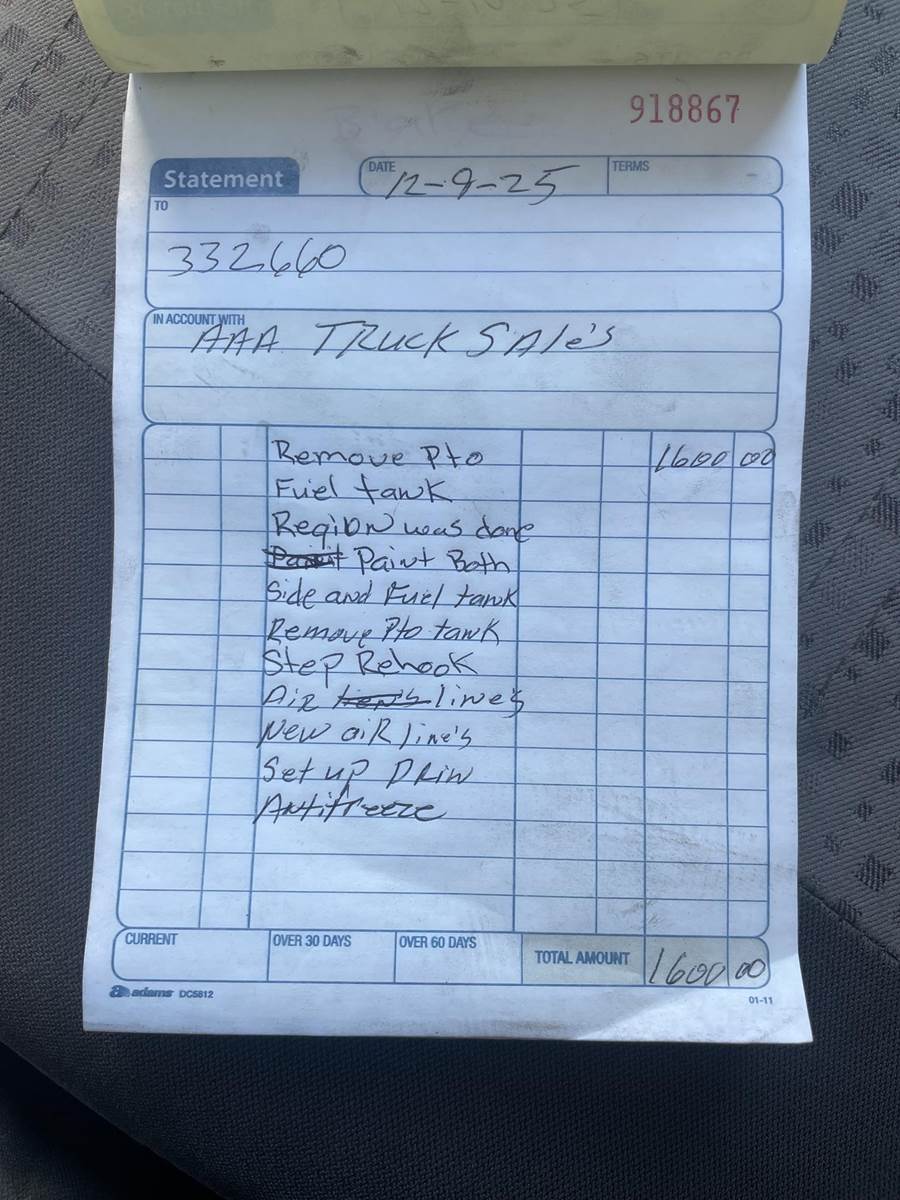 918867
Statement
DATE 12-9-25 TERMS
TO
332660
IN ACCOUNT WITH
AAA TRUCK SAle's
Remove Pto 1600 00
Fuel tank
Region was done
Paint Both
Side and Fuel tank
Remove Pto tank
Step Rehook
AiR line's
New aiR line's
Set up DRiN
Antifreeze
CURRENT OVER 30 DAYS OVER 60 DAYS TOTAL AMOUNT 1600 00
adams DC5812 01-11